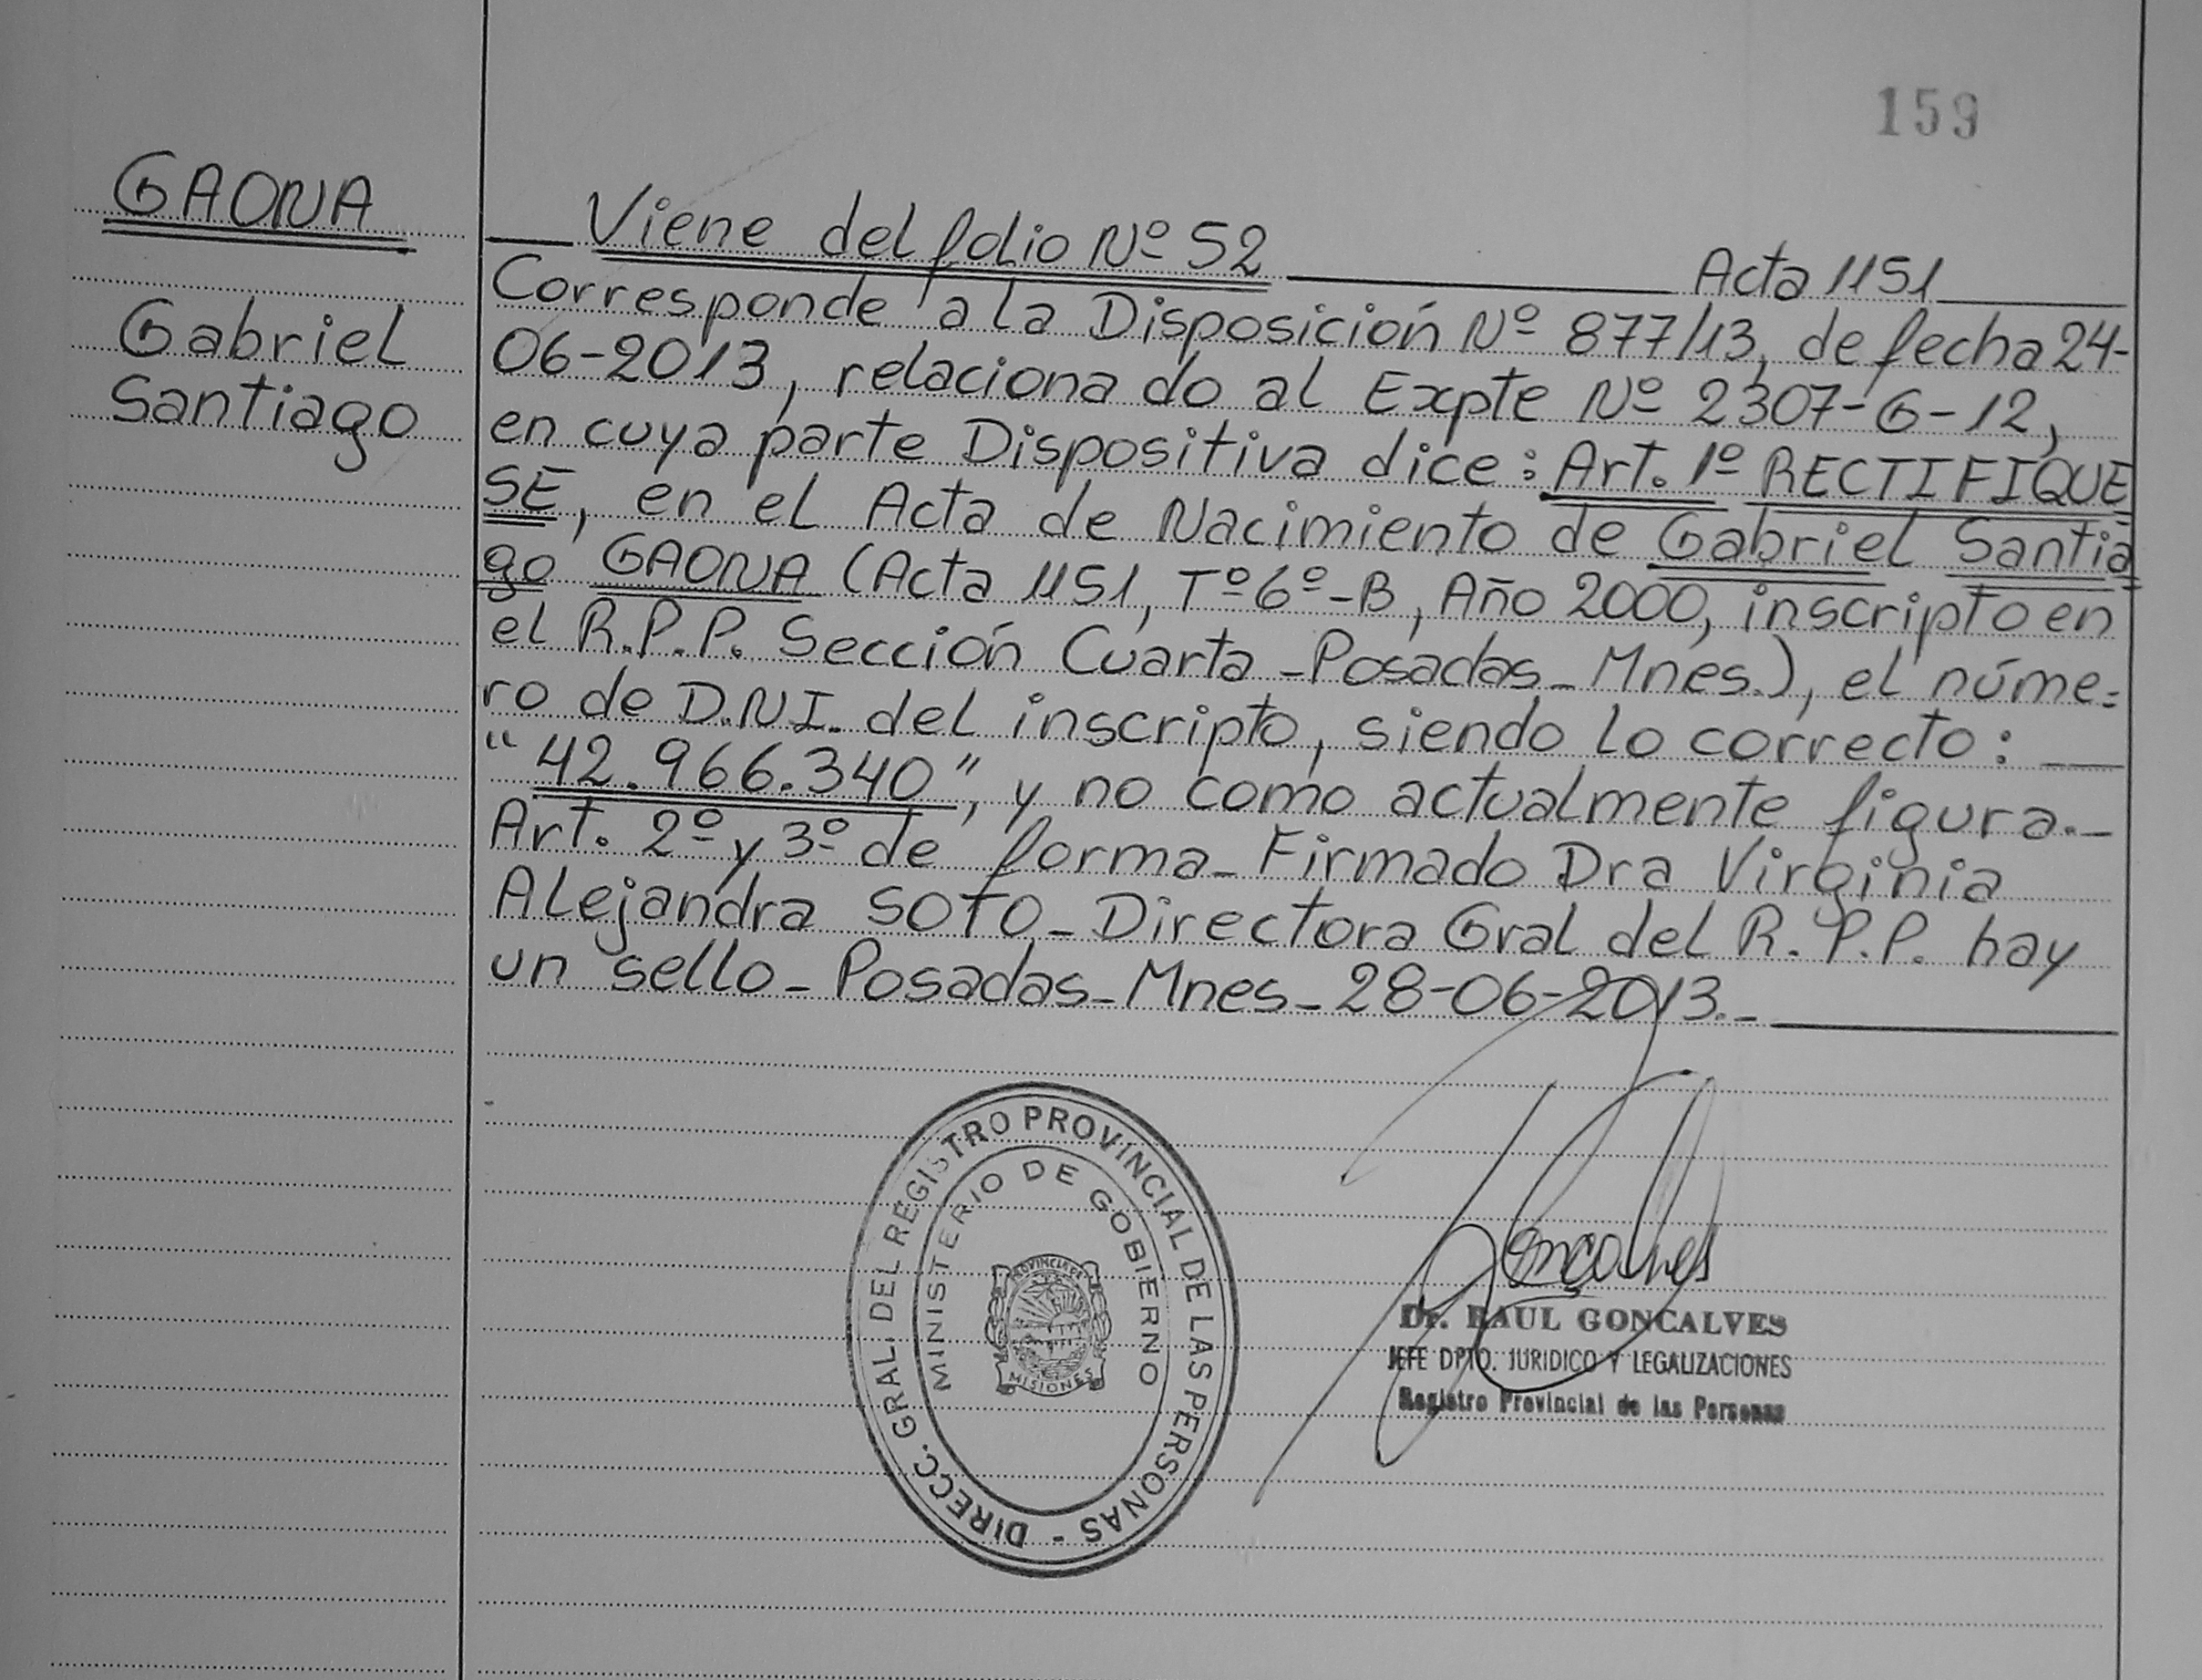 159
GAONA
Gabriel
Santiago
Viene del folio Nº 52 Acta 1151
Corresponde a la Disposición Nº 877/13, de fecha 24-
06-2013, relaciona do al Expte Nº 2307-G-12,
en cuya parte Dispositiva dice: Art. 1º RECTIFIQUE
SE, en el Acta de Nacimiento de Gabriel Santia
go GAONA (Acta 1151, Tº6º-B, Año 2000, inscripto en
el R.P.P. Sección Cuarta-Posadas-Mnes.), el núme=
ro de D.N.I. del inscripto, siendo lo correcto:
"42.966.340", y no como actualmente figura.-
Art. 2º y 3º de forma-Firmado Dra Virginia
Alejandra SOTO-Directora Gral del R.P.P. hay
un sello-Posadas-Mnes-28-06-2013.-
DIRECC. GRAL. DEL REGISTRO PROVINCIAL DE LAS PERSONAS -
MINISTERIO DE GOBIERNO
PROVINCIA DE
MISIONES
Goncalves
Dr. RAUL GONCALVES
JEFE DPTO. JURIDICO Y LEGALIZACIONES
Registro Provincial de las Personas